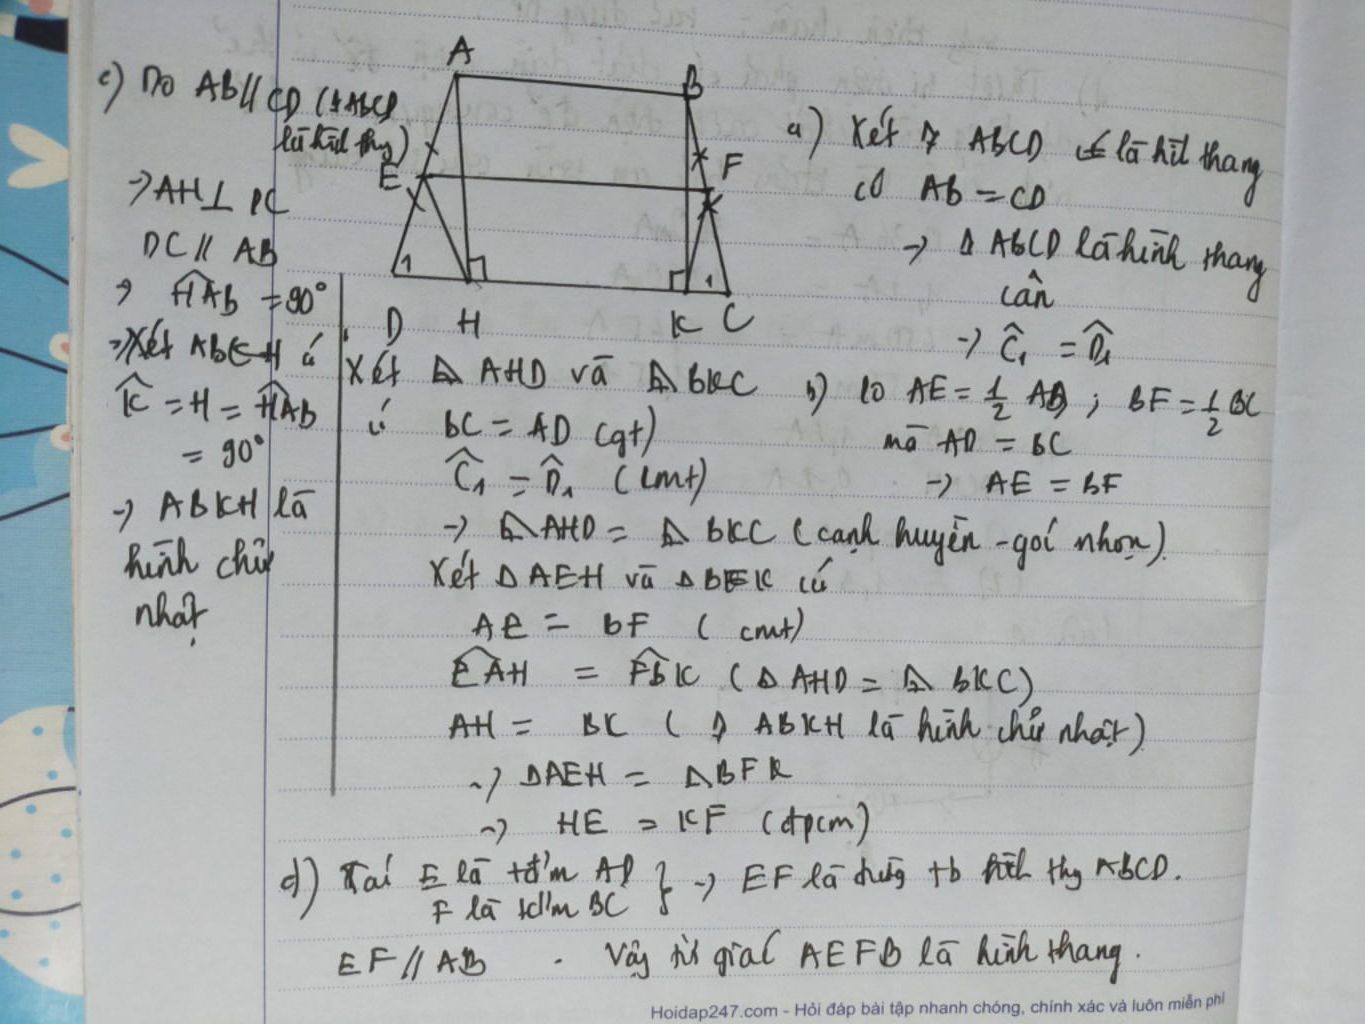 c) Do AB // CD (tABCD
là hìh thg)
→ AH ⊥ DC
DC // AB
→ HAB = 90°
→ Xét ABKH có
K = H = HAB
= 90°
→ ABKH là
hình chữ
nhật
A
B
E
F
1
1
D H K C
a) Xét ABCD là hìh thang
có AB = CD
→ ABCD là hình thang
cân
→ C1 = D1
Xét Δ AHD và Δ BKC
có BC = AD (gt)
C1 = D1 (cmt)
→ ΔAHD = Δ BKC (cạnh huyền - goí nhọn)
b) AE = 1/2 AD ; BF = 1/2 BC
mà AD = BC
→ AE = BF
Xét ΔAEH và ΔBFK có
AE = BF (cmt)
EAH = FBK (ΔAHD = Δ BKC)
AH = BK ( ABKH là hình chữ nhật)
→ ΔAEH = ΔBFK
→ HE = KF (đpcm)
d) Taí E là tđ'm AD
F là tđ'm BC } → EF là đường tb hìh thg ABCD.
EF // AB . Vậy tứ giaí AEFB là hình thang.
Hoidap247.com - Hỏi đáp bài tập nhanh chóng, chính xác và luôn miễn phí